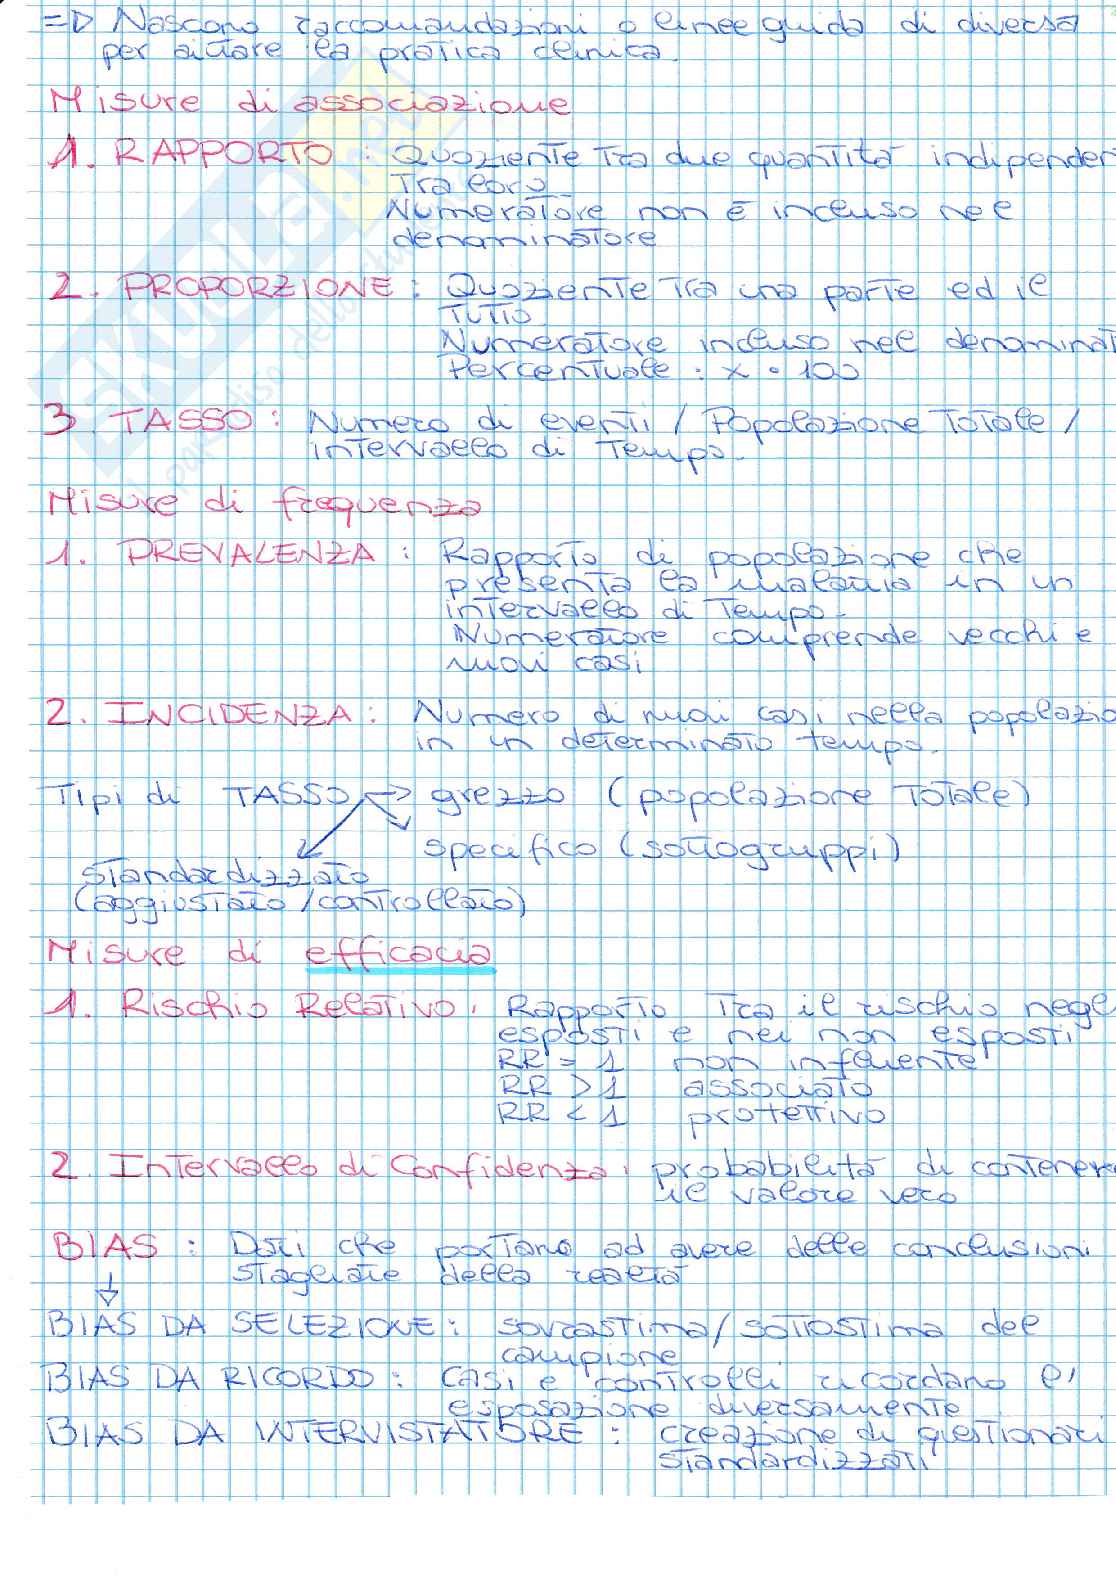 =D Nascono raccomandazioni o linee guida di diversa
per aiutare la pratica clinica.
Misure di associazione
1. RAPPORTO : Quoziente tra due quantità indipenden
tra loro
Numeratore non è incluso nel
denominatore
2. PROPORZIONE : Quoziente tra una parte ed il
tutto
Numeratore incluso nel denominat
Percentuale : x • 100
3 TASSO : Numero di eventi / Popolazione totale /
intervallo di tempo.
Misure di frequenza
1. PREVALENZA : Rapporto di popolazione che
presenta la malattia in un
intervallo di tempo.
Numeratore comprende vecchi e
nuovi casi
2. INCIDENZA : Numero di nuovi casi nella popolazio
in un determinato tempo.
Tipi di TASSO → grezzo (popolazione totale)
specifico (sottogruppi)
standardizzato
(aggiustato / controllato)
Misure di efficacia
1. Rischio Relativo : Rapporto tra il rischio negl
esposti e nei non esposti
RR = 1 non influente
RR > 1 associato
RR < 1 protettivo
2. Intervallo di Confidenza : probabilità di contener
il valore vero
BIAS : Dati che portano ad avere delle conclusioni
stagliate della realtà
BIAS DA SELEZIONE : sovrastima/sottostima del
campione
BIAS DA RICORDO : Casi e controlli ricordano l'
esposazione diversamente
BIAS DA INTERVISTATORE : creazione di questionari
standardizzati